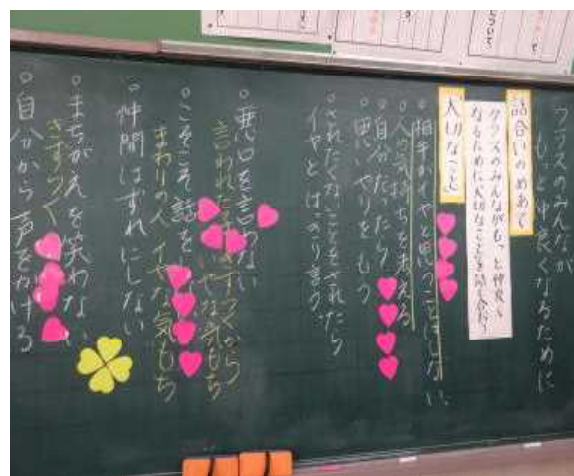 クラスのみんなが
もっと仲良くなるために
話合いのめあて
クラスのみんながもっと仲良く
なるために大切なことを
大切なこと
○相手がイヤと思うことはしない。
○人の気持ちを考える
○自分だったら
思いやりをもつ
○されたくないことをされたら
イヤとはっきり言う。
○悪口を言わない
言われたら きずつくから
いやな気もち
○こそこそ話を
まわりの人 イヤな気もち
○仲間はずれにしない
○まちがえを笑わない
きずつく
○自分から声をかける
について